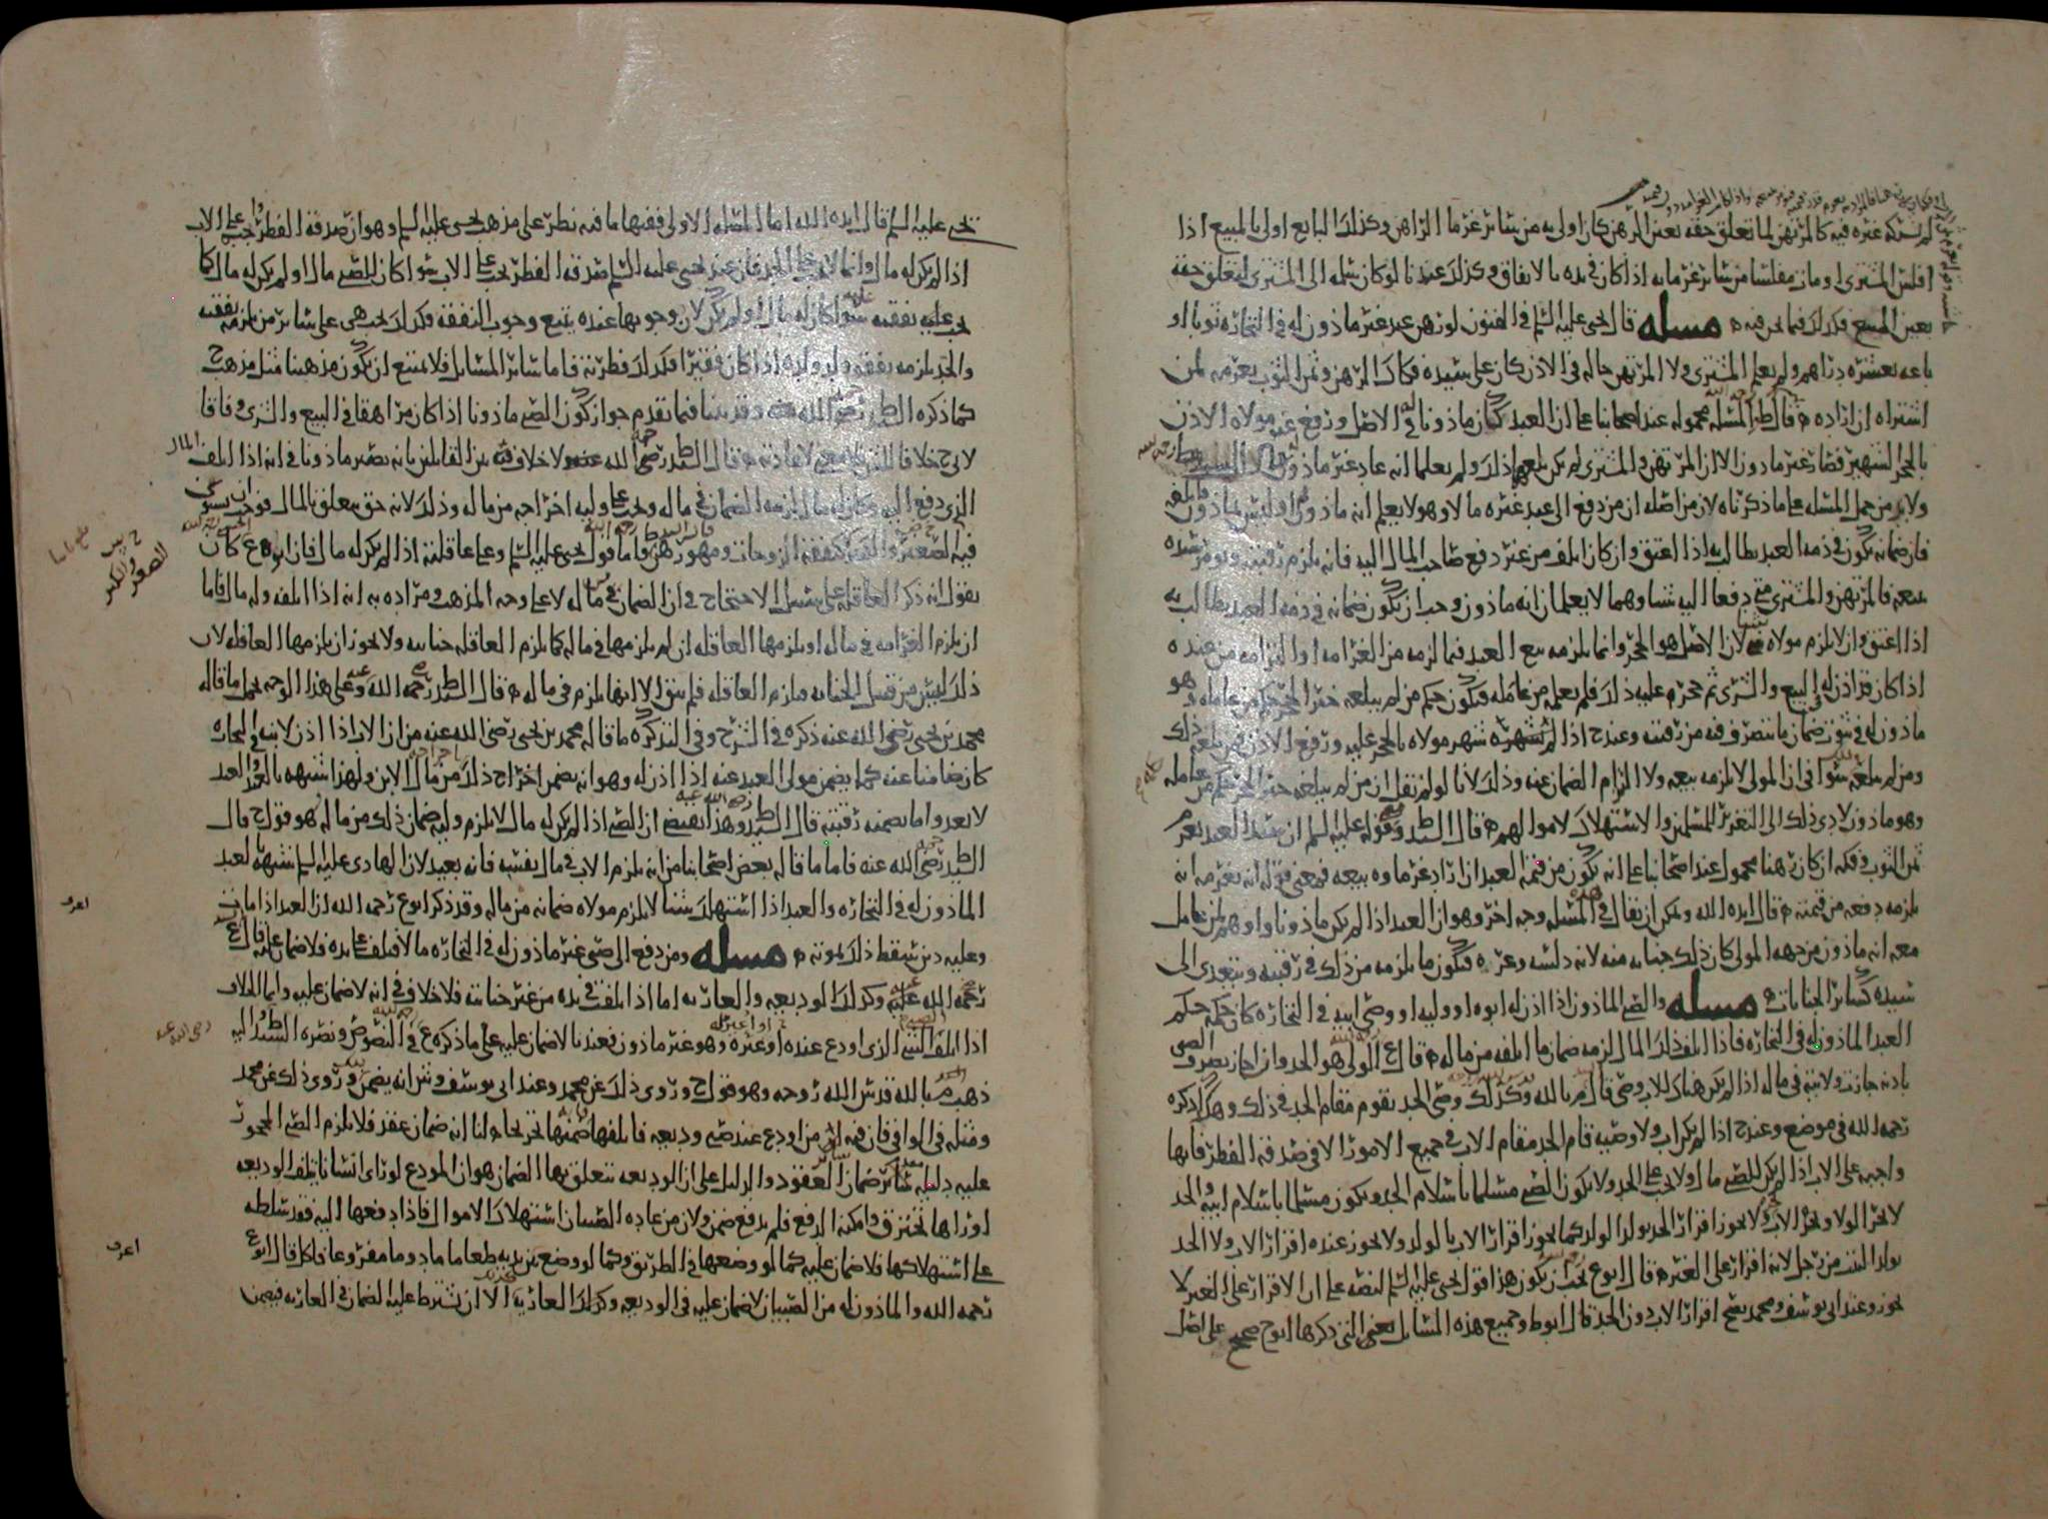 لم يشركه غيره فيه كالمرتهن لما تعلق حقه بعين الرهن كان اولى به من سائر غرما الراهن وكذلك البايع اولى بالمبيع اذا
افلس المشتري او مات مفلسا من سائر غرمائه اذا كان في يده بالاتفاق وكذلك عندنا لو كان سلمه الى المشتري لتعلق حقه
بعين المبيع فكذلك فيما نحن فيه مسله قال يحيى عليه السلم في الفنون لو رهن عبد غير ماذون له في التجاره ثوبا او
باعه بعشره دراهم ولم يعلم المشتري ولا المرتهن حاله في الاذن كان على سيده فكاك الرهن وثمن الثوب يغرمه لمن
اشتراه ان اراده قال ط المسله محموله عند اصحابنا على ان العبد كان ماذونا له في الاصل ورفع عنه مولاه الاذن
بالحجر الشهير فصار غير ماذون الا ان المرتهن والمشتري لم يكن بلغهم ذلك ولم يعلما انه عاد غير ماذون
ولا بد من حمل المسله على ما ذكرناه لان من اصله ان من دفع الى عبد غيره مالا وهو لا يعلم انه ماذون او ليس بماذون فاتلفه
فان ضمانه يكون في ذمه العبد يطالب به اذا اعتق وان كان اتلف من غير دفع صاحب المال اليه فانه يلزم رقبته ويومر سيده
ببيعه فالمرتهن والمشتري متى دفعا اليه شيا وهما لا يعلمان انه ماذون وجب ان يكون ضمانه في ذمه العبد يطالب به
اذا اعتق وان لا يلزم مولاه لان الاصل هو الحجر وانما يلزمه بيع العبد فيما لزمه من الغرامه او التزامه من عنده
اذا كان قد اذن له في البيع والشرى ثم حجر عليه ذلك فلم يعلمه من عامله فيكون حكم من لم يبلغه خبر الحجر حكم من عامله وهو
ماذون له في ثبوت ضمان ما يتصرف فيه من رقبته وعند ح اذا لم يشهره شهر مولاه بالحجر عليه ورفع الاذن فمن بلغه ذلك
ومن لم يبلغه سوا في ان المولى لا يلزمه بيعه ولا التزام الضمان عنه وذلك لانا لو لم نقل ان من لم يبلغه خبر الحجر كمن عامله
وهو ماذون لادى ذلك الى التغرير بالمسلمين والاستهلاك لاموالهم قال السيد وقوله عليه السلم ان سيد العبد يغرم
ثمن الثوب وفكه ان كان رهنا محمول عند اصحابنا على انه يكون من قيمه العبد ان زاد غرماوه بيعه فمعنى قوله انه يغرمه انه
يلزمه دفعه من قيمته قال ايده الله ويمكن ان يقال في هذه المسله وجه اخر وهو ان العبد اذا لم يكن ماذونا واوهم لمن عامل
معه انه ماذون من جهه المولى كان ذلك جنايه منه لانه دلسه وغره فيكون ما يلزمه من ذلك في رقبته ويتعدى الى
سيده كسائر الجنايات مسله والصبي الماذون اذا اذن له ابوه او وليه او وصي ابيه في التجاره كان حكمه حكم
العبد الماذون له في التجاره فاذا اتلف ذلك المال لزمه ضمان ما اتلفه من ماله قال ع الولي هو الجد وان اجاز تصرف الصبي
باذنه جازت ولايته في ماله اذا لم يكن هناك للاب وصي قال م بالله وكذلك وصي الجد يقوم مقام الجد في ذلك وهكذا ذكره
رحمه الله في موضع وعند ح اذا لم يكن اب ولا وصيه قام الجد مقام الاب في جميع الامور الا في صدقه الفطر فانها
واجبه على الاب اذا لم يكن للصبي مال ولا يجب على الجد ولا يكون الصبي مسلما باسلام الجد ويكون مسلما باسلام ابيه والجد
لا يجر الولا ويجر الاب ولا يجوز اقرار الجد بولد الولد كما يجوز اقرار الاب بالولد ولا يجوز عنده اقرار الاب ولا الجد
بولد البنت من رجل لانه اقرار على الغير قال ابوع يجب ان يكون هذا قول يحيى عليه السلم لنصه على ان الاقرار على الغير لا
يجوز وعند ابي يوسف ومحمد يصح اقرار الاب دون الجد قال ابو ط وجميع هذه المسائل يعني التي ذكرها ابو ح صحيح على اصل
يحيى عليه السلم قال ايده الله اما المسله الاولى ففيها ما فيه نظر على مذهب يحيى عليه السلم وهو ان صدقه الفطر واجب على الاب
اذا لم يكن له مال وانما لا يجب على الجد فان عند يحيى عليه السلم صدقه الفطر تجب على الاب سوا كان للصبي مال او لم يكن له مال كما
يجب عليه نفقته سوا كان له مال او لم يكن لان وجوبها عنده يتبع وجوب النفقه فكذلك يجب هي على سائر من يلزمه نفقته
والجد يلزمه نفقه ولد ولده اذا كان فقيرا فكذلك فطرته فاما سائر المسائل فلا يمتنع ان يكون مذهبنا مثل مذهب ح
كما ذكره السيد ط رضي الله عنه وقد بينا فيما تقدم جواز كون الصبي ماذونا اذا كان مراهقا في البيع والشرى وفاقا
لابي ح خلافا للشافعي لاعادته قال السيد رضي الله عنه ولا خلاف فيه بين القائلين بانه يصير ماذونا في انه اذا اتلف المال
الذي دفع اليه وكان له مال لزمه الضمان في ماله ويجب على وليه اخراجه من ماله وذلك لانه حق يتعلق بالمال فوجب ان يستوي
فيه الصغير والكبير كنفقه الزوجات ومهورهن فاما قول يحيى عليه السلم وعلى عاقلته اذا لم يكن له مال فان ابوع كان
يقول انه ذكر العاقله على سبيل الاحتجاج في ان الضمان في ماله لا على وجه المذهب ومراده به انه اذا اتلفه وله مال فاما
ان يلزم الغرامه في ماله او يلزمها العاقله ان لم يلزمها في ماله كما يلزم العاقله جنايته ولا يجوز ان يلزمها العاقله لان
ذلك ليس من قبيل الجنايه فيلزم العاقله فلم يبق الا انها يلزم في ماله قال السيد رحمه الله وعلى هذا الوجه يحمل ما قاله
محمد بن يحيى رضي الله عنه ذكره في الشرح وفي التذكره ما قاله محمد بن يحيى رضي الله عنه من ان الاب اذا اذن لابنه في التجاره
كان ضامنا عنه كما يضمن مولى العبد عنه اذا اذن له وهو انه يضمن اخراج ذلك من مال الابن ولهذا شبهه بالعبد والعبد
لا يعدو اما يضمنه رقبته قال السيد وهذا يقتضي ان الصبي اذا لم يكن له مال لا يلزم وليه ضمان ذلك من ماله وهو قول ح قال
السيد رضي الله عنه فاما ما قاله بعض اصحابنا من انه يلزم الاب في مال نفسه فانه بعيد لان الهادي عليه السلم شبهه لعبد
الماذون له في التجاره والعبد اذا استهلك شيئا لا يلزم مولاه ضمانه من ماله وقد ذكر ابوع رحمه الله ان العبد اذا مات
وعليه دين سقط ذلك بموته مسله ومن دفع الى صبي غير ماذون له في التجاره مالا فتلف على يده فلا ضمان عليه قال ع
رحمه الله وكذلك الوديعه والعاريه اما اذا تلفت في يده من غير جنايته فلا خلاف في انه لا ضمان عليه وانما الخلاف
اذا اتلف الشي الذي اودع عنده او غيره وهو غير ماذون فعندنا لا ضمان عليه على ما ذكره ع في النصوص ونصره السيد ط واليه
ذهب م بالله قدس الله روحه وهو قول ح وروي ذلك عن محمد وعند ابي يوسف وش انه يضمن وروي ذلك عن محمد
ومثله في الوافي فان فيه من اودع عند صبي وديعه فاتلفها ضمنها لنا انه ضمان عقد فلا يلزم الصبي المحجور
عليه دليله سائر ضمان العقود والدليل على ان الوديعه يتعلق بها الضمان هو ان المودع لو راى انسانا يتلف الوديعه
او راها تحترق وامكنه الدفع فلم يدفع ضمن ولان من عاده الصبيان استهلاك الاموال فاذا دفعها اليه فقد سلطه
على استهلاكها فلا ضمان عليه كما لو وضعها في الطريق وكما لو وضع بين يديه طعاما فاكل قال ابوع
رحمه الله والماذون له من الصبيان لا ضمان عليه في الوديعه وكذلك العاريه الا ان يشترط عليه الضمان في العاريه فيضمن